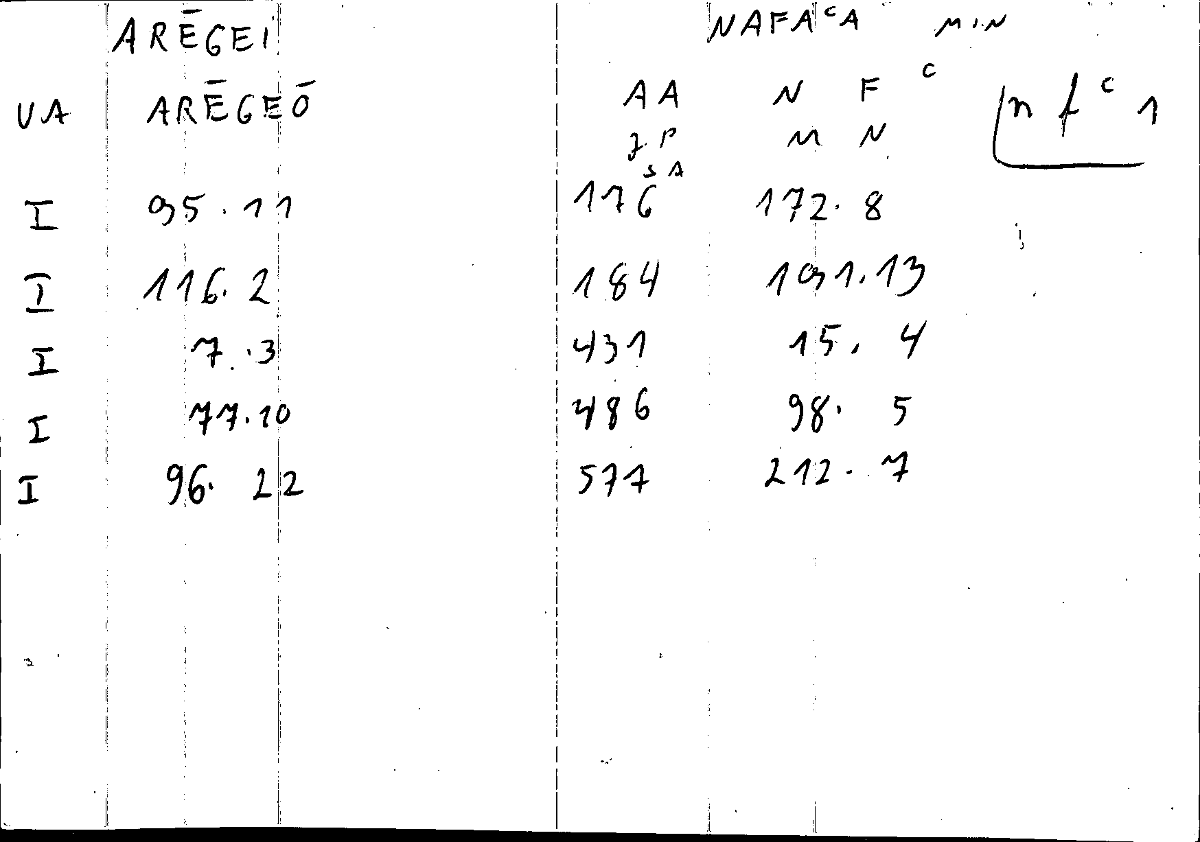 ARĒGEI NAFAᶜA MIN
UA ARĒGEŌ AA N F ᶜ n f ᶜ 1
JP M N
SA
I 95.11 176 172.8
I 116.2 184 191.13
I 7.3 431 15.4
I 77.10 486 98.5
I 96.22 577 212.7